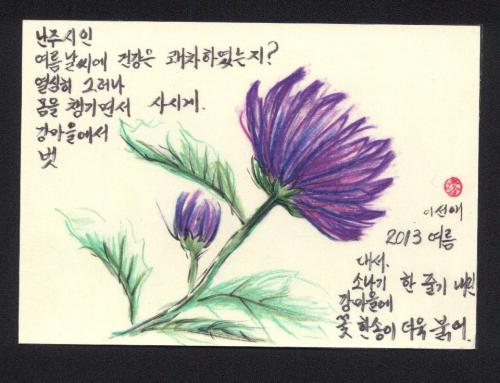 난주시인
여름날씨에 건강은 괜차하였는지?
열심히 그러나
몸을 챙기면서 사시게.
강마을에서
벗
이선애
2013 여름
대서.
소나기 한 줄기 내린
강마을에
꽃 한송이 더욱 붉어.